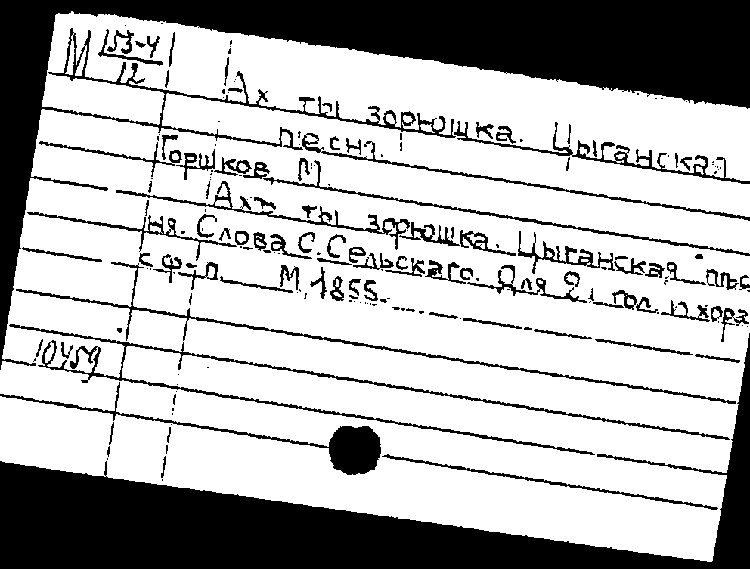 М 153-4
12
Ах ты зорюшка. Цыганская
песня.
Горшков, М.
Ахъ ты зорюшка. Цыганская пѣс
ня. Слова С. Сельскаго. Для 2 гол. и хора
с ф-п. М, 1855.
10459